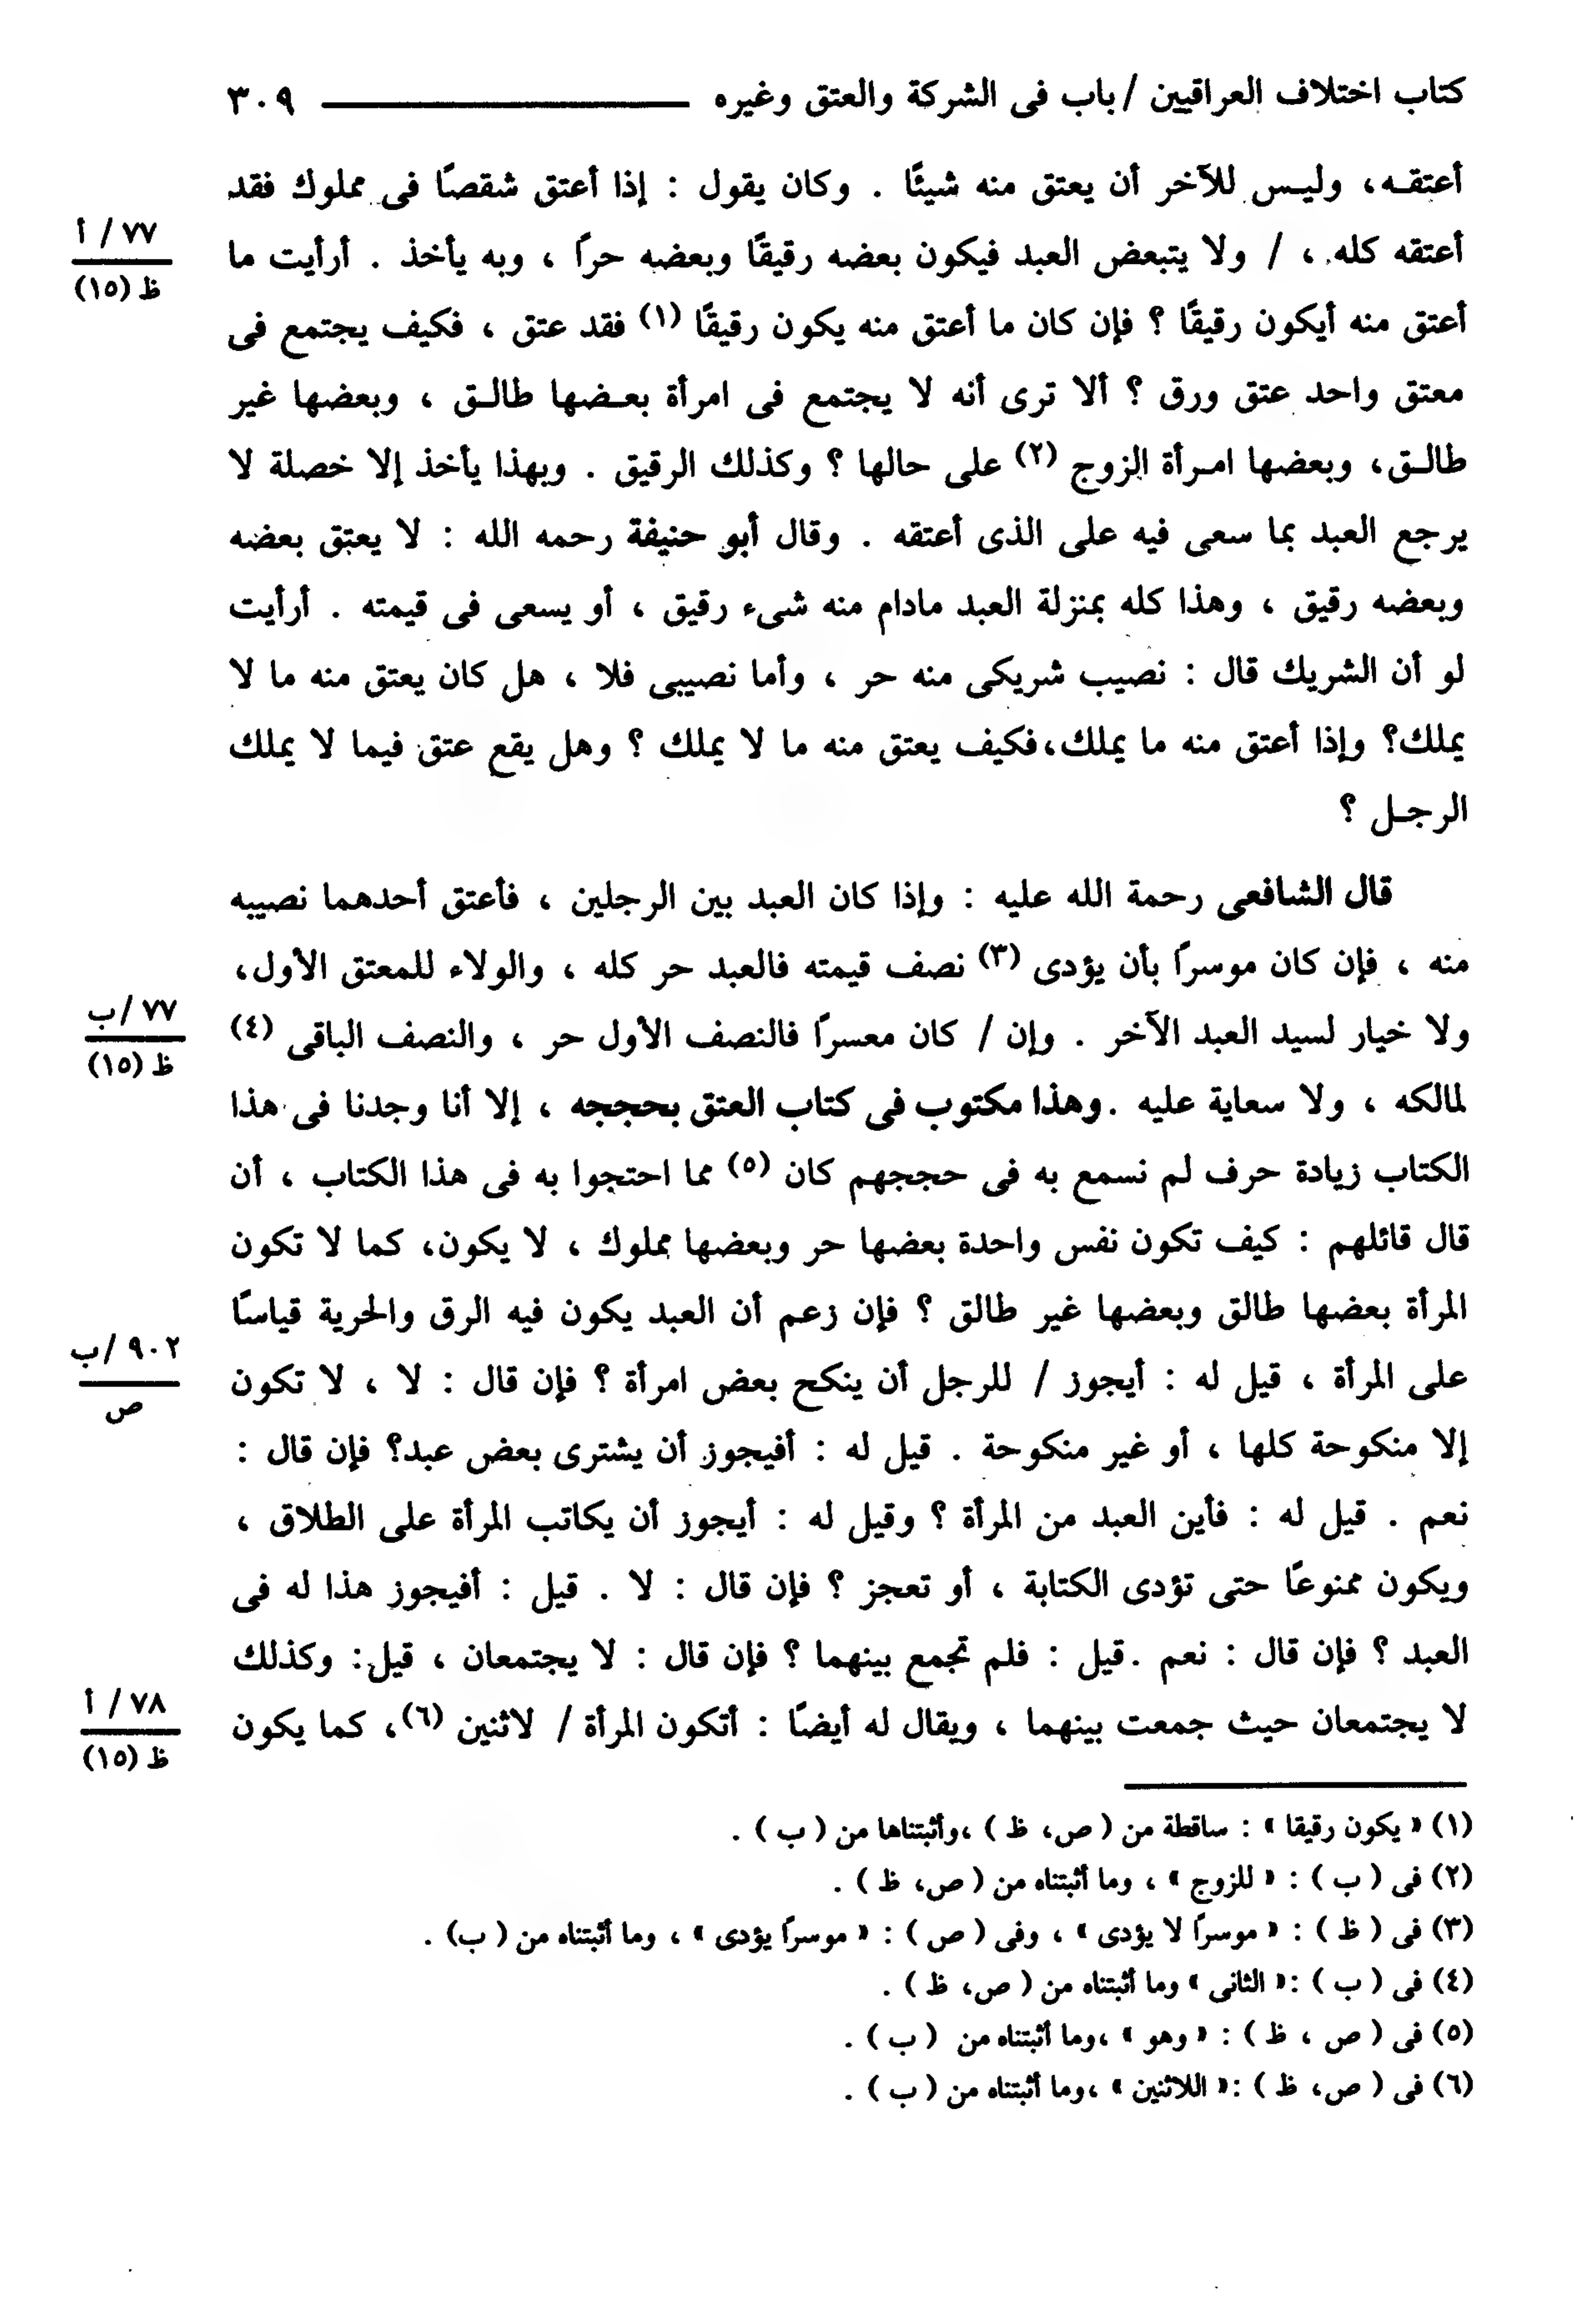 كتاب اختلاف العراقيين / باب فى الشركة والعتق وغيره ــــــــــ ٣٠٩
أعتقـه، وليـس للآخر أن يعتق منه شيئًا . وكان يقول : إذا أعتق شقصًا فى مملوك فقد
٧٧ / أ
ظ (١٥)
أعتقه كله ، / ولا يتبعض العبد فيكون بعضه رقيقًا وبعضه حرًا ، وبه يأخذ . أرأيت ما
أعتق منه أيكون رقيقًا ؟ فإن كان ما أعتق منه يكون رقيقًا (١) فقد عتق ، فكيف يجتمع فى
معتق واحد عتق ورق ؟ ألا ترى أنه لا يجتمع فى امرأة بعـضها طالـق ، وبعضها غير
طالـق، وبعضها امـرأة الزوج (٢) على حالها ؟ وكذلك الرقيق . وبهذا يأخذ إلا خصلة لا
يرجع العبد بما سعى فيه على الذى أعتقه . وقال أبو حنيفة رحمه الله : لا يعتق بعضه
وبعضه رقيق ، وهذا كله بمنزلة العبد مادام منه شىء رقيق ، أو يسعى فى قيمته . أرأيت
لو أن الشريك قال : نصيب شريكى منه حر ، وأما نصيبى فلا ، هل كان يعتق منه ما لا
يملك؟ وإذا أعتق منه ما يملك،فكيف يعتق منه ما لا يملك ؟ وهل يقع عتق فيما لا يملك
الرجـل ؟
قال الشافعى رحمة الله عليه : وإذا كان العبد بين الرجلين ، فأعتق أحدهما نصيبه
منه ، فإن كان موسرًا بأن يؤدى (٣) نصف قيمته فالعبد حر كله ، والولاء للمعتق الأول،
٧٧ /ب
ظ (١٥)
ولا خيار لسيد العبد الآخر . وإن / كان معسرًا فالنصف الأول حر ، والنصف الباقى (٤)
لمالكه ، ولا سعاية عليه .وهذا مكتوب فى كتاب العتق بحججه ، إلا أنا وجدنا فى هذا
الكتاب زيادة حرف لم نسمع به فى حججهم كان (٥) مما احتجوا به فى هذا الكتاب ، أن
قال قائلهم : كيف تكون نفس واحدة بعضها حر وبعضها مملوك ، لا يكون، كما لا تكون
المرأة بعضها طالق وبعضها غير طالق ؟ فإن زعم أن العبد يكون فيه الرق والحرية قياسًا
٩٠٢ /ب
ص
على المرأة ، قيل له : أيجوز / للرجل أن ينكح بعض امرأة ؟ فإن قال : لا ، لا تكون
إلا منكوحة كلها ، أو غير منكوحة . قيل له : أفيجوز أن يشترى بعض عبد؟ فإن قال :
نعم . قيل له : فأين العبد من المرأة ؟ وقيل له : أيجوز أن يكاتب المرأة على الطلاق ،
ويكون ممنوعًا حتى تؤدى الكتابة ، أو تعجز ؟ فإن قال : لا . قيل : أفيجوز هذا له فى
العبد ؟ فإن قال : نعم .قيل : فلم تجمع بينهما ؟ فإن قال : لا يجتمعان ، قيل: وكذلك
٧٨ / أ
ظ (١٥)
لا يجتمعان حيث جمعت بينهما ، ويقال له أيضًا : أتكون المرأة / لاثنين (٦)، كما يكون
(١) « يكون رقيقا » : ساقطة من ( ص، ظ ) ،وأثبتناها من ( ب ) .
(٢) فى ( ب ) : « للزوج » ، وما أثبتناه من ( ص، ظ ) .
(٣) فى ( ظ ) : « موسرًا لا يؤدى » ، وفى ( ص ) : « موسرًا يؤدى » ، وما أثبتناه من ( ب) .
(٤) فى ( ب ) :« الثانى » وما أثبتناه من ( ص، ظ ) .
(٥) فى ( ص ، ظ ) : « وهو » ،وما أثبتناه من ( ب ) .
(٦) فى ( ص، ظ ) :« اللاثنين » ،وما أثبتناه من ( ب ) .